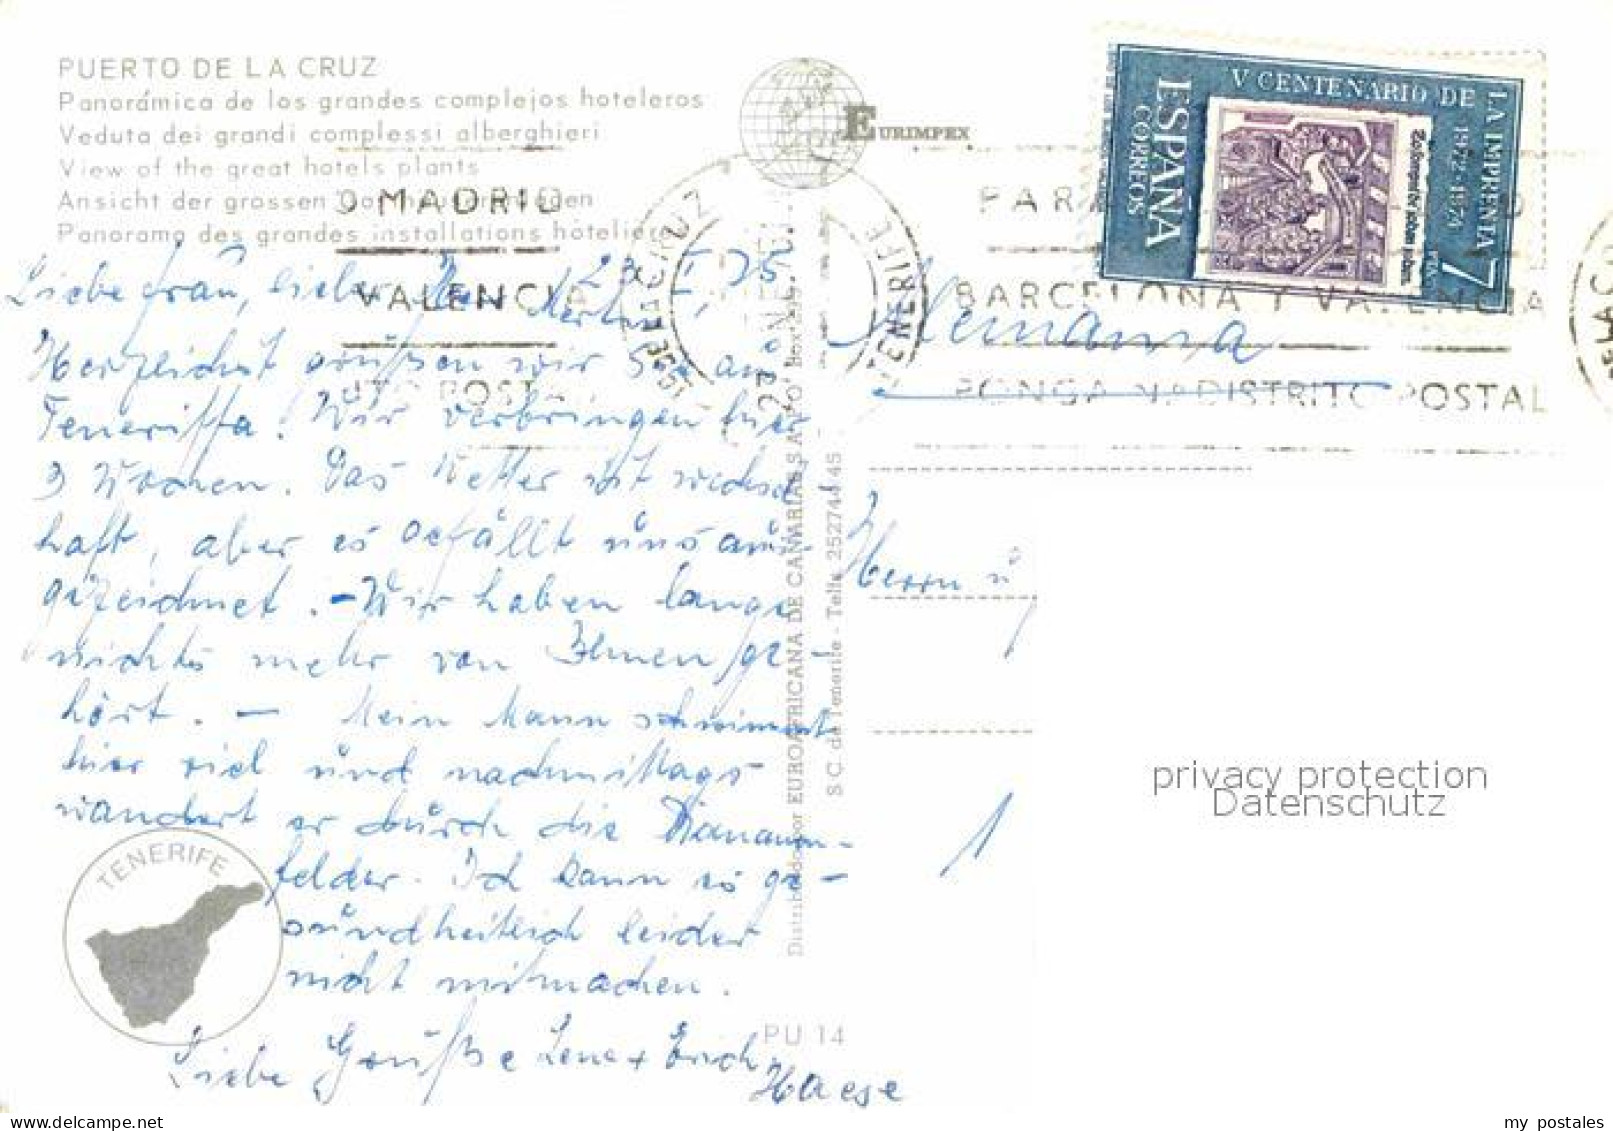 PUERTO DE LA CRUZ
Panorámica de los grandes complejos hoteleros
Veduta dei grandi complessi alberghieri
View of the great hotels plants
Ansicht der grossen
Panorama des grandes installations hôtelières
EURIMPEX
V CENTENARIO DE LA IMPRENTA
1972-1974
ESPAÑA
CORREOS
7
PTAS
MADRID
VALENCIA
POSTAL
CRUZ
TENERIFE
PARA
BARCELONA Y VALENCIA
PONGA DISTRITO POSTAL
23. I. 75
Liebe Frau, lieber Herr
Herzlichst grüßen wir Sie aus
Teneriffa. Wir verbringen hier
3 Wochen. Das Wetter ist wechsel
haft, aber es gefällt uns aus-
gezeichnet. - Wir haben lange
nichts mehr von Ihnen ge-
hört. - Mein Mann schwimmt
hier viel und nachmittags
wandert er durch die Bananen-
felder. Ich kann es ge-
sundheitlich leider
nicht mitmachen.
Liebe Grüße Lene + Erich
Haese
Alemania
Herrn u
1
TENERIFE
PU 14
Distribuido por EUROAFRICANA DE CANARIAS S.A.
S.C. de Tenerife - Telfs. 252744/45
privacy protection
Datenschutz
my postales